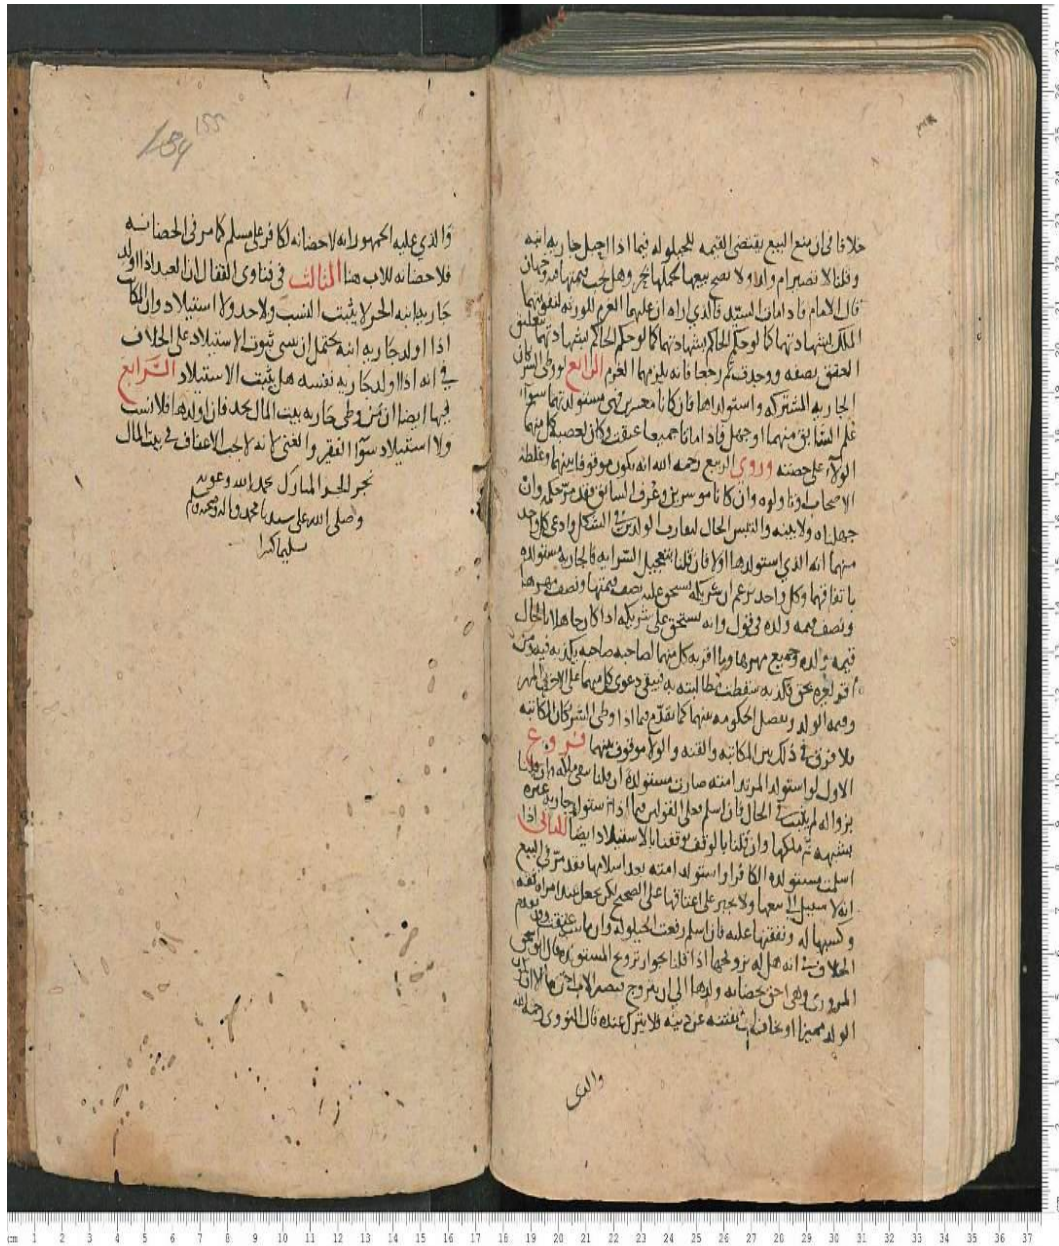 خلافا في ان منع البيع يقتضي القيمه للحيلوله فيما اذا احبل جاريه ابنه
وقلنا لا تصير ام ولد ولا يصح بيعها لحملها بحر وهل تجب قيمتها فيه وجهان
قال الامام فاذا مات السيد فالذي اراه ان عليهما الغرم للورثه
الملك بشهادتهما كما لو حكم الحاكم بشهادتهما
العتق بصفه ووجدت ثم رجعا فانه يلزمهما الغرم الرابع لو وطى الشريكان
الجاريه المشتركه واستولداها فان كانا معسرين فهي مستولدتهما سواء
علم السابق منهما او جهل فاذا ماتا جميعا عتقت وكان لعصبه كل منهما
الولاء على حصته وروى الربيع رحمه الله انه يكون موقوفا بينهما وغلطه
الاصحاب او تاولوه وان كانا موسرين وعرف السابق فقد مر حكمه وان
جهلناه ولا بينه والتبس الحال لتقارب الولدين في الشكل وادعى كل واحد
منهما انه الذي استولدها اولا فان قلنا بتعجيل السرايه فالجاريه مستولده
باتفاقهما وكل واحد يزعم ان شريكه يستحق عليه نصف قيمتها ونصف مهرها
ونصف قيمه ولده في قول وانه يستحق على شريكه اذا كان جاهلا بالحال
قيمه ولده وجميع مهرها وما اقر به كل منهما لصاحبه صاحبه يكذبه فيه ومن
اقر لغيره بحق فكذبه سقطت مطالبته به فيبقى دعوى كل منهما على الاخر المهر
وقيمه الولد وتفصل الحكومه بينهما كما تقدم فيما اذا وطى الشريكان المكاتبه
فلا فرق في ذلك بين المكاتبه والقنه والولا موقوف بينهما فروع
الاول لو استولد المرتد امته صارت مستولدة ان قلنا ببقى ملكه وان قلنا
بزواله لم يثبت في الحال فان اسلم فعلى القولين فيما اذا استولد جاريه غيره
بشبهه ثم ملكها وان قلنا بالوقف توقفنا بالاستيلاد ايضا الثاني اذا
اسلمت مستولدة الكافر او استولد امته بعد اسلامها فقد مر في البيع
انه لا سبيل الى بيعها ولا يجبر على اعتاقها على الصحيح لكن تجعل عند امراه ثقه
وكسبها له ونفقتها عليه فان اسلم رفعت الحيلوله وان مات عتقت وقد تقدم
الخلاف في انه هل له تزويجها اذا قلنا بجواز تزويج المستولده قال ابو اسحق
المروزي وهي احق بحضانه ولدها الى ان يتزوج فيصير الاب احق بها الا ان كان
الولد مميزا او يخاف ان تفتنه عن دينه فلا يترك عنده قال النووي رحمه الله
والذي
والذي عليه الجمهور انه لا حضانه لكافر على مسلم كما مر في الحضانه
فلا حضانه للاب هنا الثالث في فتاوى القفال ان العبد اذا اولد
جاريه ابنه الحر لا يثبت النسب ولا حد ولا استيلاد وان المكاتب
اذا اولد جاريه ابنه يحتمل ان يبنى ثبوت الاستيلاد على الخلاف
في انه اذا اولد جاريه نفسه هل يثبت الاستيلاد الرابع
فيها ايضا ان من وطى جاريه بيت المال يحد فان اولدها فلا نسب
ولا استيلاد سوا الفقير والغني لانه لا يجب الاعفاف في بيت المال
نجز الجزء المبارك بحمد الله وعونه
وصلى الله على سيدنا محمد واله وصحبه وسلم
تسليما كثيرا
134
155